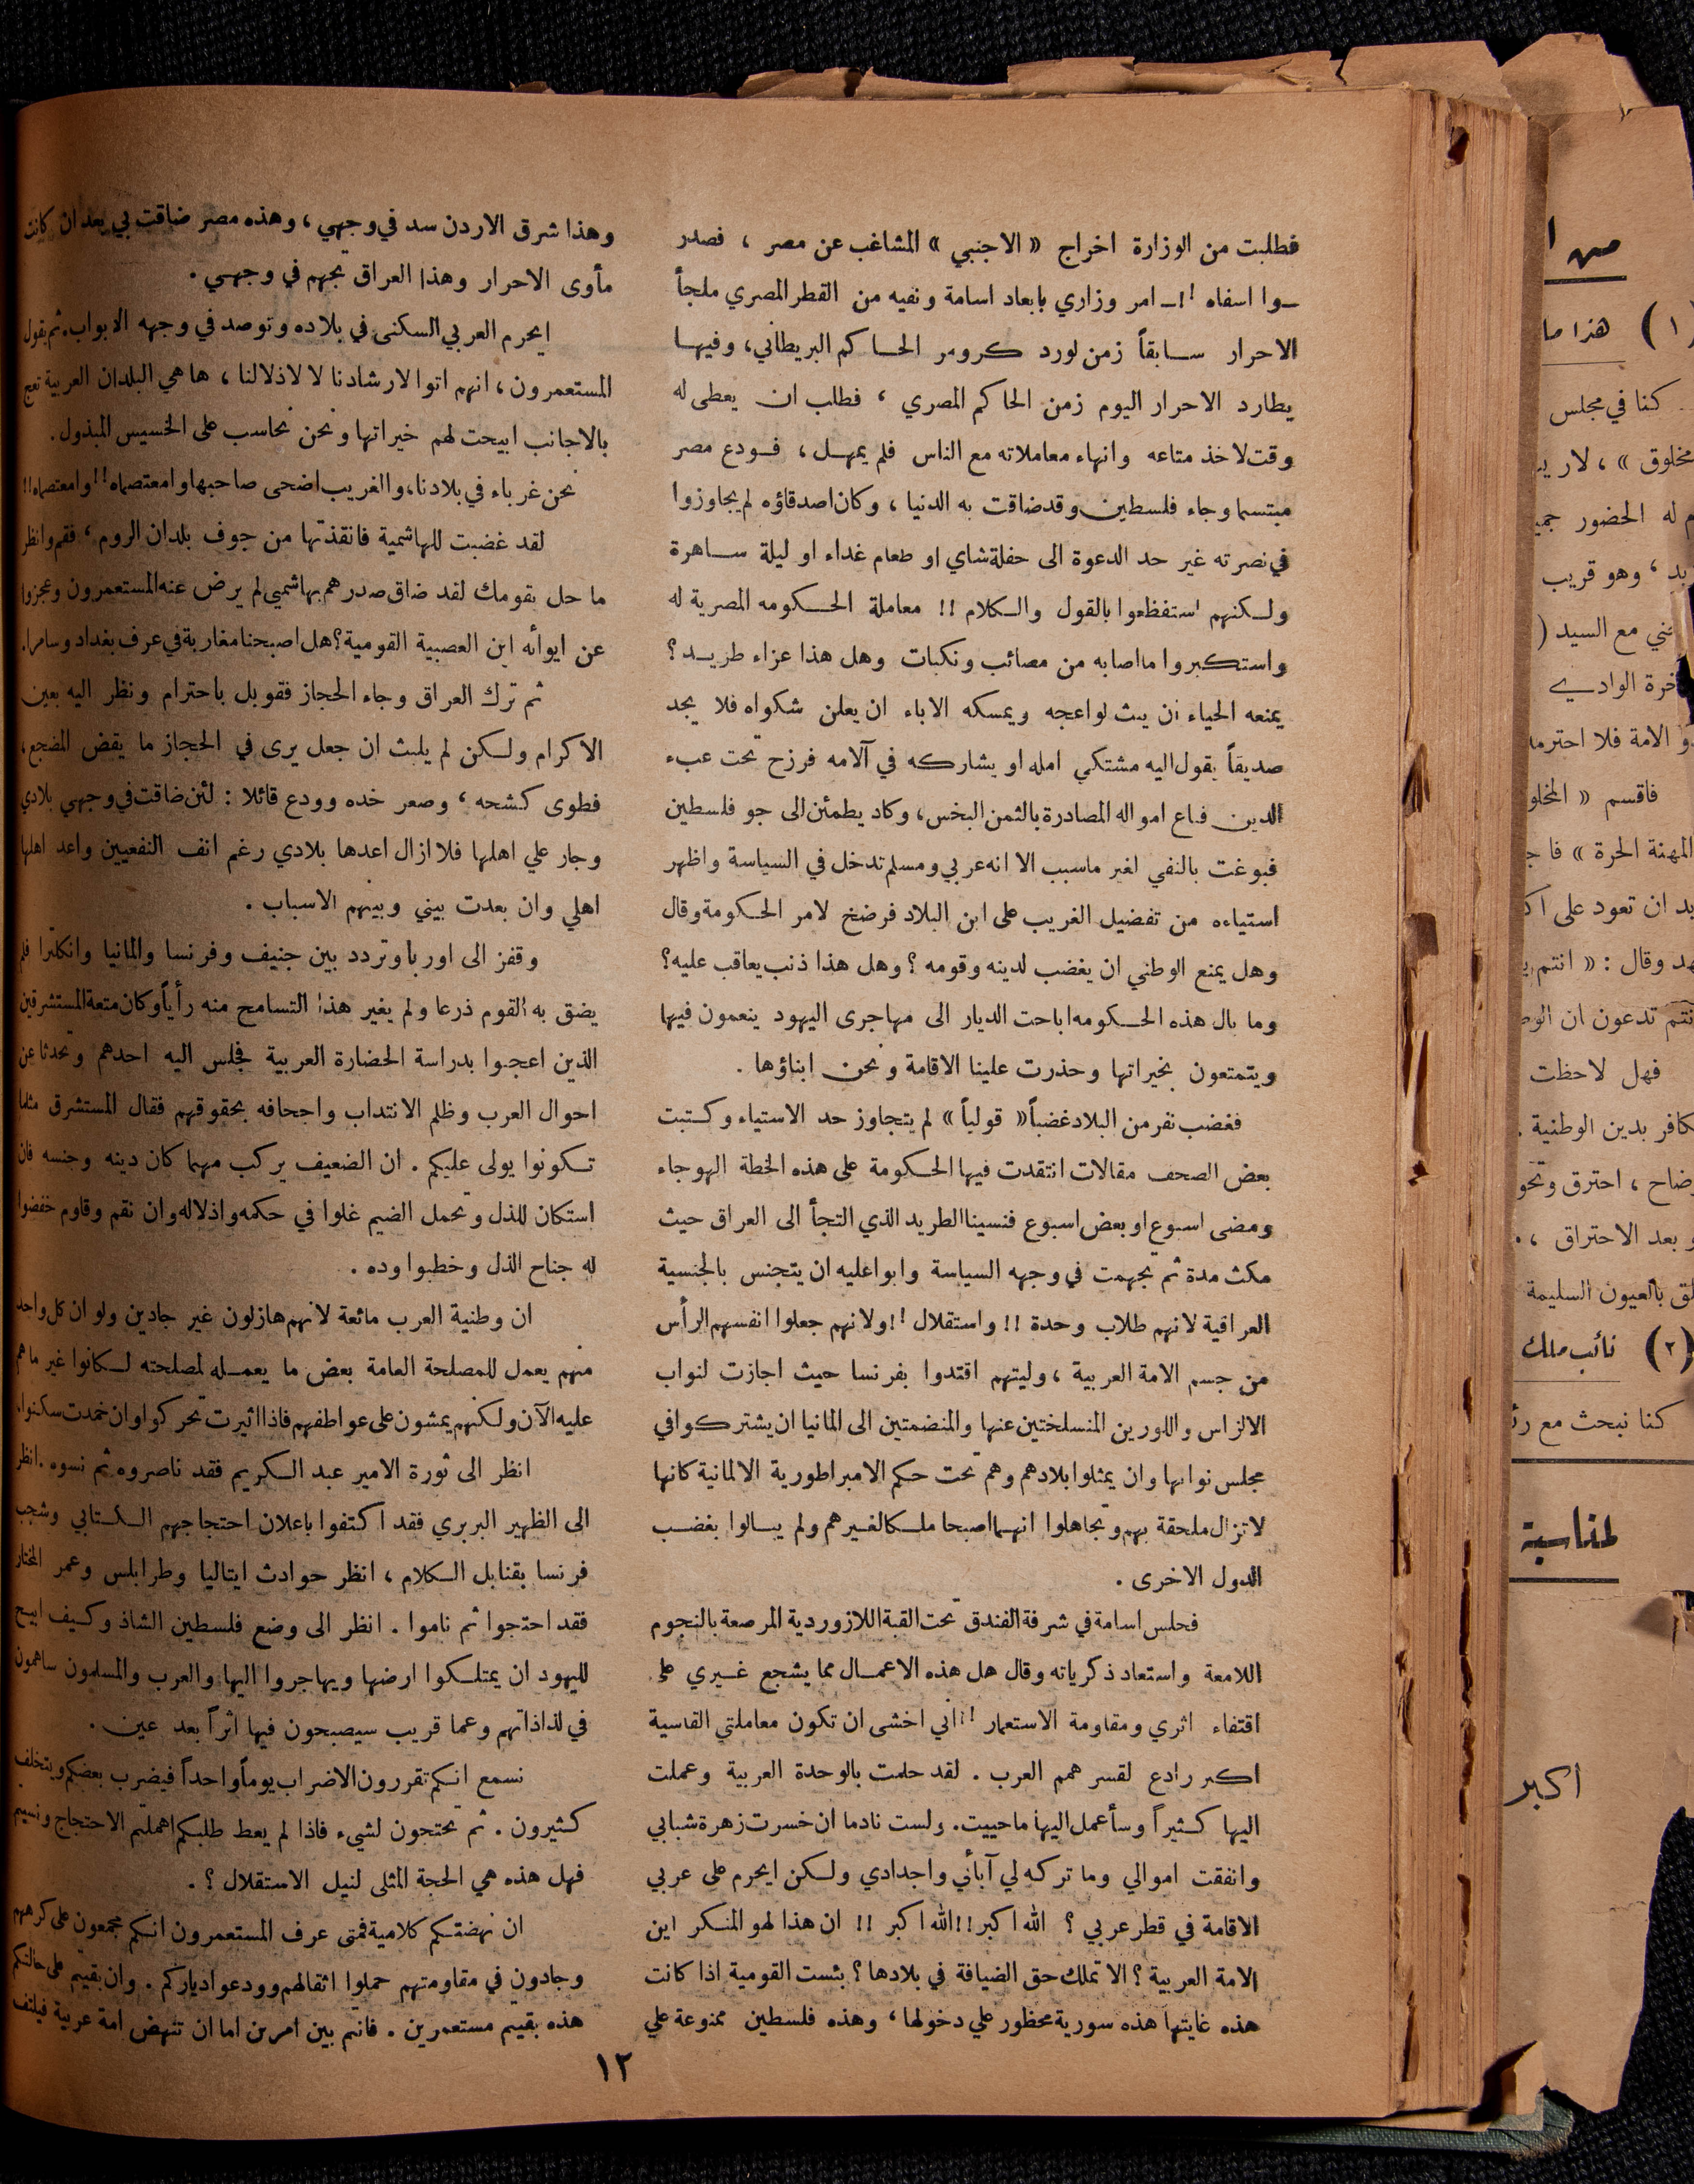 فطلبت من الوزارة اخراج « الاجنبي » المشاغب عن مصر ، فصدر
ـ وا اسفاه !! ـ امر وزاري بابعاد اسامة ونفيه من القطر المصري ملجأ
الاحرار سابقاً زمن لورد كرومر الحاكم البريطاني، وفيها
يطارد الاحرار اليوم زمن الحاكم المصري ، فطلب ان يعطى له
وقت لاخذ متاعه وانهاء معاملاته مع الناس فلم يمهل ، فودع مصر
مبتسما وجاء فلسطين وقد ضاقت به الدنيا ، وكان اصدقاؤه لم يجاوزوا
في نصرته غير حد الدعوة الى حفلة شاي او طعام غداء او ليلة ساهرة
ولكنهم استفظعوا بالقول والكلام !! معاملة الحكومه المصرية له
واستكبروا ما اصابه من مصائب ونكبات وهل هذا عزاء طريد ؟
يمنعه الحياء ان يبث لواعجه ويمسكه الاباء ان يعلن شكواه فلا يجد
صديقاً يقول اليه مشتكي امله او يشاركه في آلامه فرزح تحت عبء
الدين فباع امواله المصادرة بالثمن البخس، وكاد يطمئن الى جو فلسطين
فبوغت بالنفي لغير ما سبب الا انه عربي ومسلم تدخل في السياسة واظهر
استياءه من تفضيل الغريب على ابن البلاد فرضخ لامر الحكومة وقال
وهل يمنع الوطني ان يغضب لدينه وقومه ؟ وهل هذا ذنب يعاقب عليه؟
وما بال هذه الحكومه اباحت الديار الى مهاجرى اليهود ينعمون فيها
ويتمتعون بخيراتها وحذرت علينا الاقامة ونحن ابناؤها .
فغضب نفر من البلاد غضباً « قولياً » لم يتجاوز حد الاستياء وكتبت
بعض الصحف مقالات انتقدت فيها الحكومة على هذه الخطة الهوجاء
ومضى اسبوع او بعض اسبوع فنسينا الطريد الذي التجأ الى العراق حيث
مكث مدة ثم تجهمت في وجهه السياسة وابوا عليه ان يتجنس بالجنسية
العراقية لانهم طلاب وحدة !! واستقلال !! ولانهم جعلوا انفسهم الرأس
من جسم الامة العربية ، وليتهم اقتدوا بفرنسا حيث اجازت لنواب
الالزاس واللورين المنسلختين عنها والمنضمتين الى المانيا ان يشتركوا في
مجلس نوابها وان يمثلوا بلادهم وهم تحت حكم الامبراطورية الالمانية كانها
لا تزال ملحقة بهم وتجاهلوا انهما اصبحا ملكا لغيرهم ولم يبالوا بغضب
الدول الاخرى .
فجلس اسامة في شرفة الفندق تحت القبة اللازوردية المرصعة بالنجوم
اللامعة واستعاد ذكرياته وقال هل هذه الاعمال مما يشجع غيري على
اقتفاء اثري ومقاومة الاستعمار !! اني اخشى ان تكون معاملتي القاسية
اكبر رادع لقسر همم العرب . لقد حلمت بالوحدة العربية وعملت
اليها كثيراً وسأعمل اليها ما حييت. ولست نادما ان خسرت زهرة شبابي
وانفقت اموالي وما تركه لي آبائي واجدادي ولكن ايحرم على عربي
الاقامة في قطر عربي ؟ الله اكبر !! الله اكبر !! ان هذا لهو المنكر اين
الامة العربية ؟ الا تملك حق الضيافة في بلادها ؟ بئست القومية اذا كانت
هذه غايتها هذه سورية محظور علي دخولها ، وهذه فلسطين ممنوعة علي
وهذا شرق الاردن سد في وجهي ، وهذه مصر ضاقت بي بعد ان كانت
مأوى الاحرار وهذا العراق تجهم في وجهي .
ايحرم العربي السكنى في بلاده وتوصد في وجهه الابواب. ثم يقول
المستعمرون ، انهم اتوا لارشادنا لا لاذلالنا ، ها هي البلدان العربية تعج
بالاجانب ابيحت لهم خيراتها ونحن نحاسب على الخسيس المبذول.
نحن غرباء في بلادنا، والغريب اضحى صاحبها وامعتصماه !! وامعتصماه !!
لقد غضبت للهاشمية فانقذتها من جوف بلدان الروم ، فقم وانظر
ما حل بقومك لقد ضاق صدرهم بهاشمي لم يرض عنه المستعمرون وعجزوا
عن ايوائه اين العصبية القومية ؟ هل اصبحنا مغاربة في عرف بغداد وسامرا.
ثم ترك العراق وجاء الحجاز فقوبل باحترام ونظر اليه بعين
الاكرام ولكن لم يلبث ان جعل يرى في الحجاز ما يقض المضجع،
فطوى كشحه ، وصعر خده وودع قائلا : لئن ضاقت في وجهي بلادي
وجار علي اهلها فلا ازال اعدها بلادي رغم انف النفعيين واعد اهلها
اهلي وان بعدت بيني وبينهم الاسباب .
وقفز الى اوربا وتردد بين جنيف وفرنسا والمانيا وانكلترا فلم
يضق به القوم ذرعا ولم يغير هذا التسامح منه رأياً وكان متعة المستشرقين
الذين اعجبوا بدراسة الحضارة العربية فجلس اليه احدهم وتحدثا عن
احوال العرب وظلم الانتداب واجحافه بحقوقهم فقال المستشرق مثلما
تكونوا يولى عليكم . ان الضعيف يركب مهما كان دينه وجنسه فان
استكان للذل وتحمل الضيم غلوا في حكمه واذلاله وان نقم وقاوم خفضوا
له جناح الذل وخطبوا وده .
ان وطنية العرب مائعة لانهم هازلون غير جادين ولو ان كل واحد
منهم يعمل للمصلحة العامة بعض ما يعمله لمصلحته لكانوا غير ما هم
عليه الآن ولكنهم يمشون على عواطفهم فاذا اثيرت تحركوا وان خمدت سكنوا،
انظر الى ثورة الامير عبد الكريم فقد ناصروه ثم نسوه . انظر
الى الظهير البربري فقد اكتفوا باعلان احتجاجهم الكتابي وشجب
فرنسا بقنابل الكلام ، انظر حوادث ايتاليا وطرابلس وعمر المختار
فقد احتجوا ثم ناموا . انظر الى وضع فلسطين الشاذ وكيف ابيح
لليهود ان يمتلكوا ارضها ويهاجروا اليها والعرب والمسلمون ساهمون
في لذاذاتهم وعما قريب سيصبحون فيها اثراً بعد عين .
نسمع انكم تقررون الاضراب يوماً واحداً فيضرب بعضكم ويتخلف
كثيرون . ثم تحتجون لشيء فاذا لم يعط طلبكم اهملتم الاحتجاج ونسيتم
فهل هذه هي الحجة المثلى لنيل الاستقلال ؟ .
ان نهضتكم كلامية فمتى عرف المستعمرون انكم مجمعون على كرههم
وجادون في مقاومتهم حملوا اثقالهم وودعوا دياركم . وان بقيتم على حالتكم
هذه بقيتم مستعمرين . فانتم بين امرين اما ان تنهض امة عربية فيلتف
١٢
من ا
(١) هذا ما
كنا في مجلس
مخلوق » ، لا ري
م له الحضور جمي
، وهو قريب
ني مع السيد (
خرة الوادي
و الامة فلا احترم
فاقسم « المخلو
المهنة الحرة » فا
يد ان تعود على
هد وقال : « انتم
نتم تدعون ان الو
فهل لاحظت
كافر بدين الوطنية .
ضاح ، احترق وتحو
و بعد الاحتراق ، .
لق بالعيون السليمة
(٢) نائب ملك
كنا نبحث مع
لمناسبة
اكبر